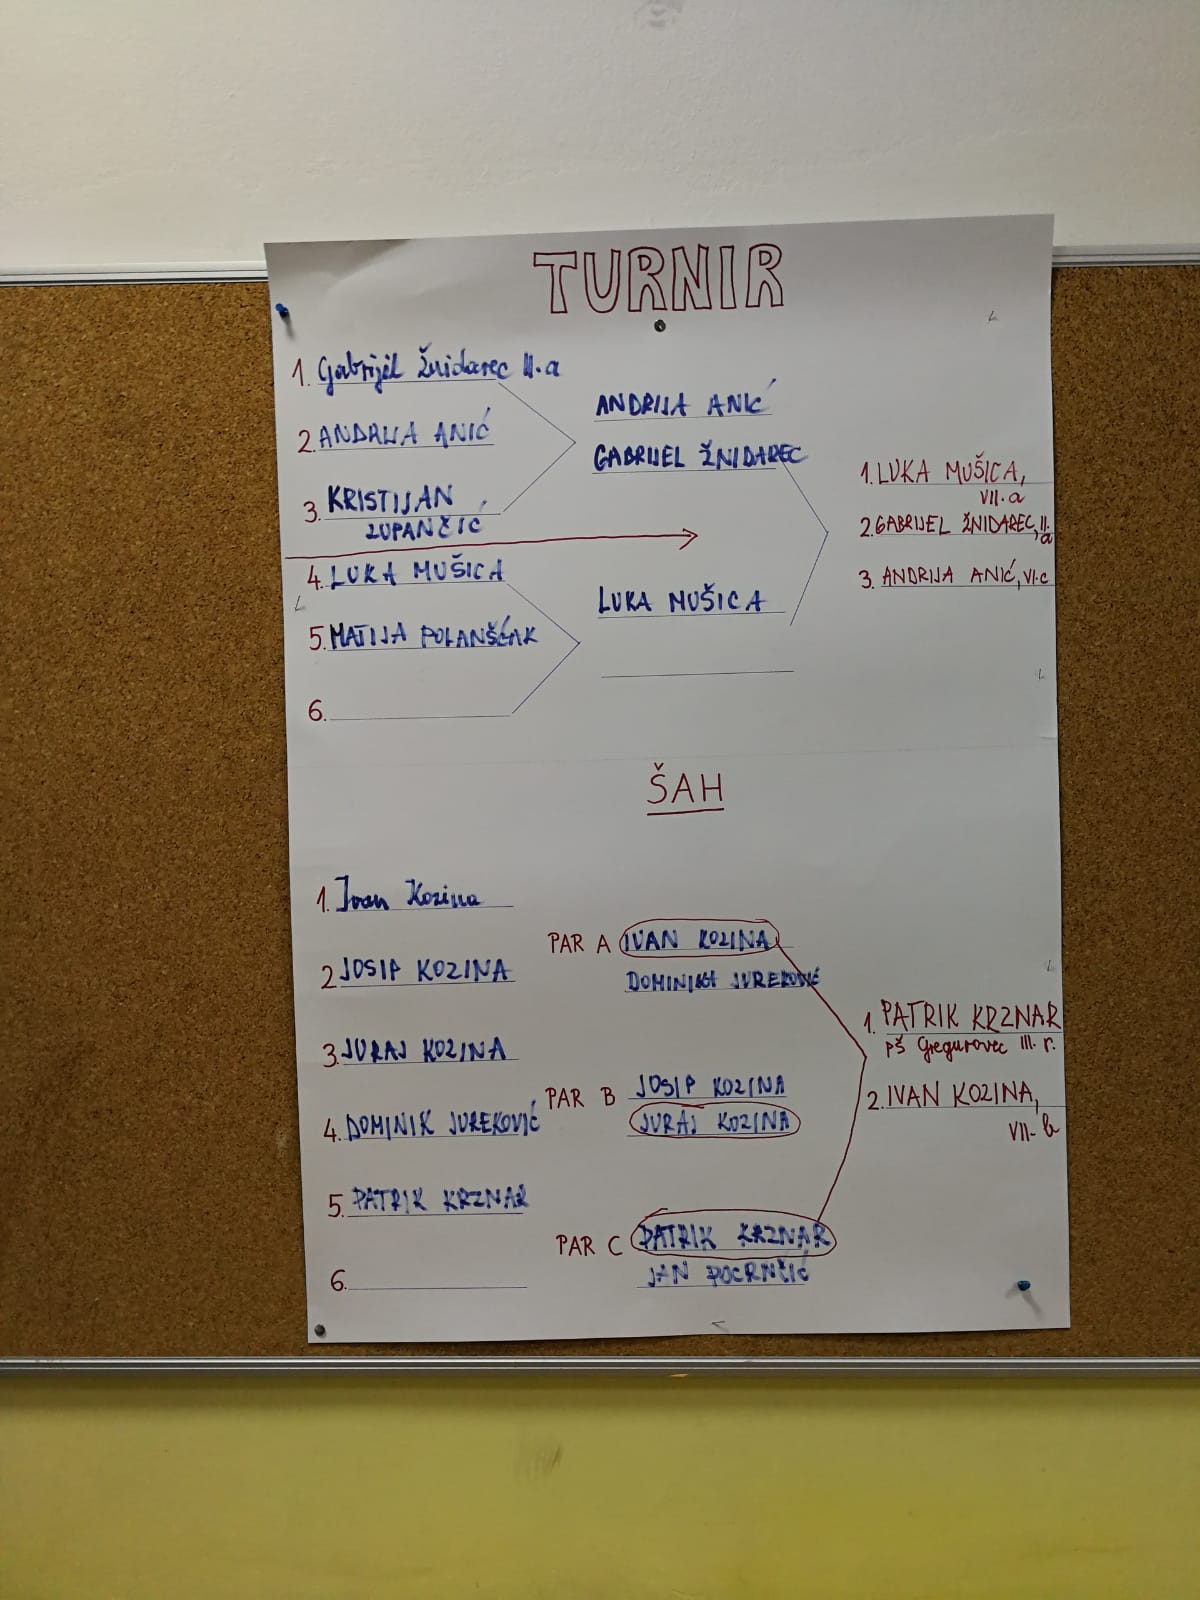 TURNIR
1. Gabrijel Žnidarec II.a
2. ANDRIJA ANIĆ
3. KRISTIJAN
ZUPANČIĆ
4. LUKA MUŠICA
5. MATIJA POLANŠĆAK
6.
ANDRIJA ANIĆ
GABRIJEL ŽNIDAREC
LUKA MUŠICA
1. LUKA MUŠICA,
VII.a
2. GABRIJEL ŽNIDAREC, II.
a
3. ANDRIJA ANIĆ, VI.c
ŠAH
1. Ivan Kozina
2 JOSIP KOZINA
3. JURAJ KOZINA
4. DOMINIK JUREKOVIĆ
5. PATRIK KRZNAR
6.
PAR A IVAN KOZINA
DOMINIK JUREKOVIĆ
PAR B JOSIP KOZINA
JURAJ KOZINA
PAR C PATRIK KRZNAR
JAN POCRNČIĆ
1. PATRIK KRZNAR
PŠ Gregurovec III. r.
2. IVAN KOZINA,
VII. b